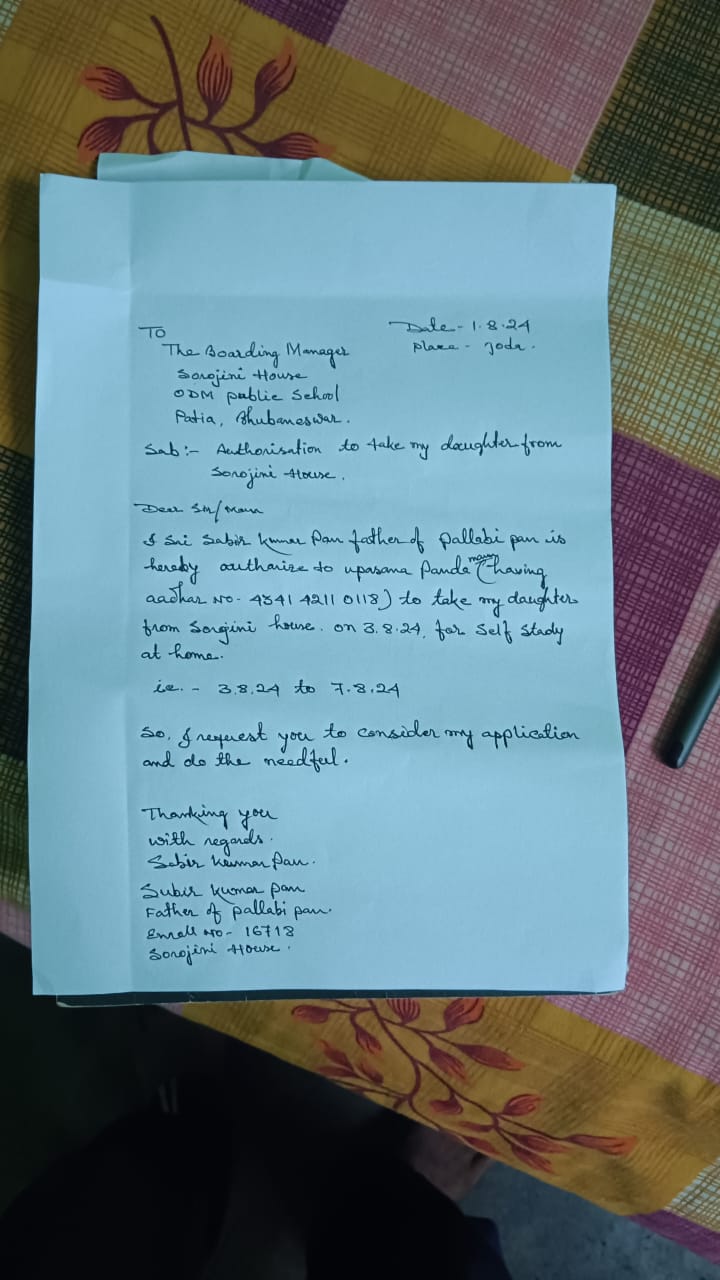 To
Date - 1.8.24
The Boarding Manager
Place - Joda.
Sorojini House
ODM public School
Patia, Bhubaneswar.
Sub :- Authorisation to take my daughter from
Sorojini House.
Dear Sir/Mam
I Sri Sabir Kumar Pan father of Pallabi pan is
hereby autharize to upasana Panda mam (having
aadhar No - 4841 4211 0118) to take my daughter
from Sorojini house. on 3.8.24, for Self Study
at home.
i.e. - 3.8.24 to 7.8.24
So, I request you to consider my application
and do the needful.
Thanking you
with regards.
Sabir Kumar Pan.
Subir Kumar pan
Father of pallabi pan.
Enroll No - 16718
Sorojini House.